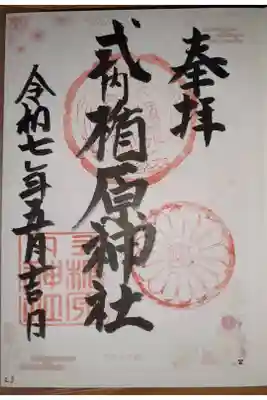 奉拝
式内楯原神社
令和七年五月吉日